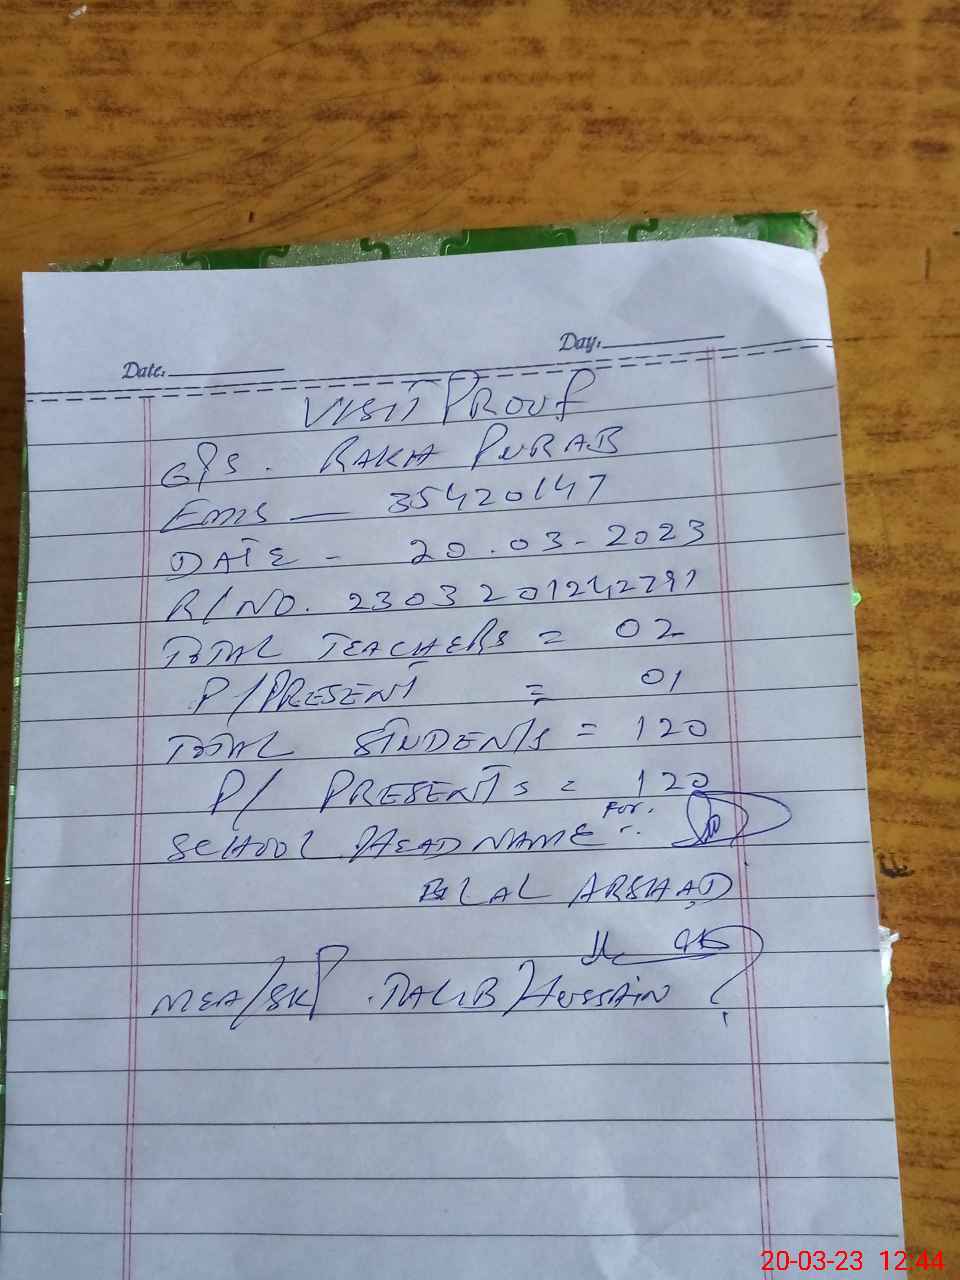 Day.
Date.
VISIT PROOF
GPS. RAKH PURAB
EMIS — 35420147
DATE - 20.03-2023
R/NO.
TOTAL TEACHERS = 02
P/PRESENT = 01
TOTAL STUDENTS = 120
P/ PRESENTS = 120
For.
SCHOOL HEAD NAME :
BILAL ARSHAD
MEA/SKP TALIB HUSSAIN
20-03-23 12:44